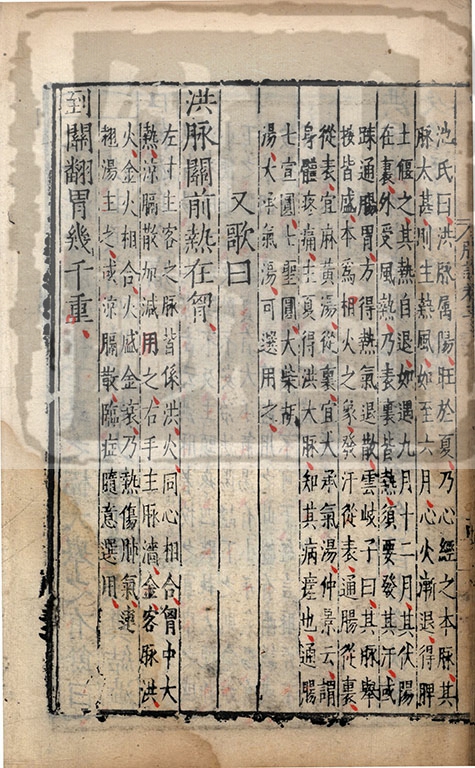 池氏曰洪脉属陽旺於夏乃心經之本脉其
脉太甚則生熱風如至六月心火漸退得脾
土偃之其熱自退如遇九月十二月其伏陽
在裏外受風熱乃表裏皆熱須要發其汗或
踈通腸胃方得熱氣退散雲岐子曰其脉舉
按皆盛本為相火之象發汗從表通腸從裏
從表宜麻黄湯從裏宜大承氣湯仲景云謂
身體疼痛主夏得洪大脉知其病瘥也通腸
七宣圓七聖圓大柴胡
湯大承氣湯可選用之
又歌曰
洪脉關前熱在胷
左寸主客之脉皆係洪火同心相合胷中大
熱涼膈散加減用之右手主脉濇金客脉洪
火金火相合火盛金衰乃熱傷肺氣連
翹湯主之或涼膈散臨症隨意選用
到關翻胃幾千重